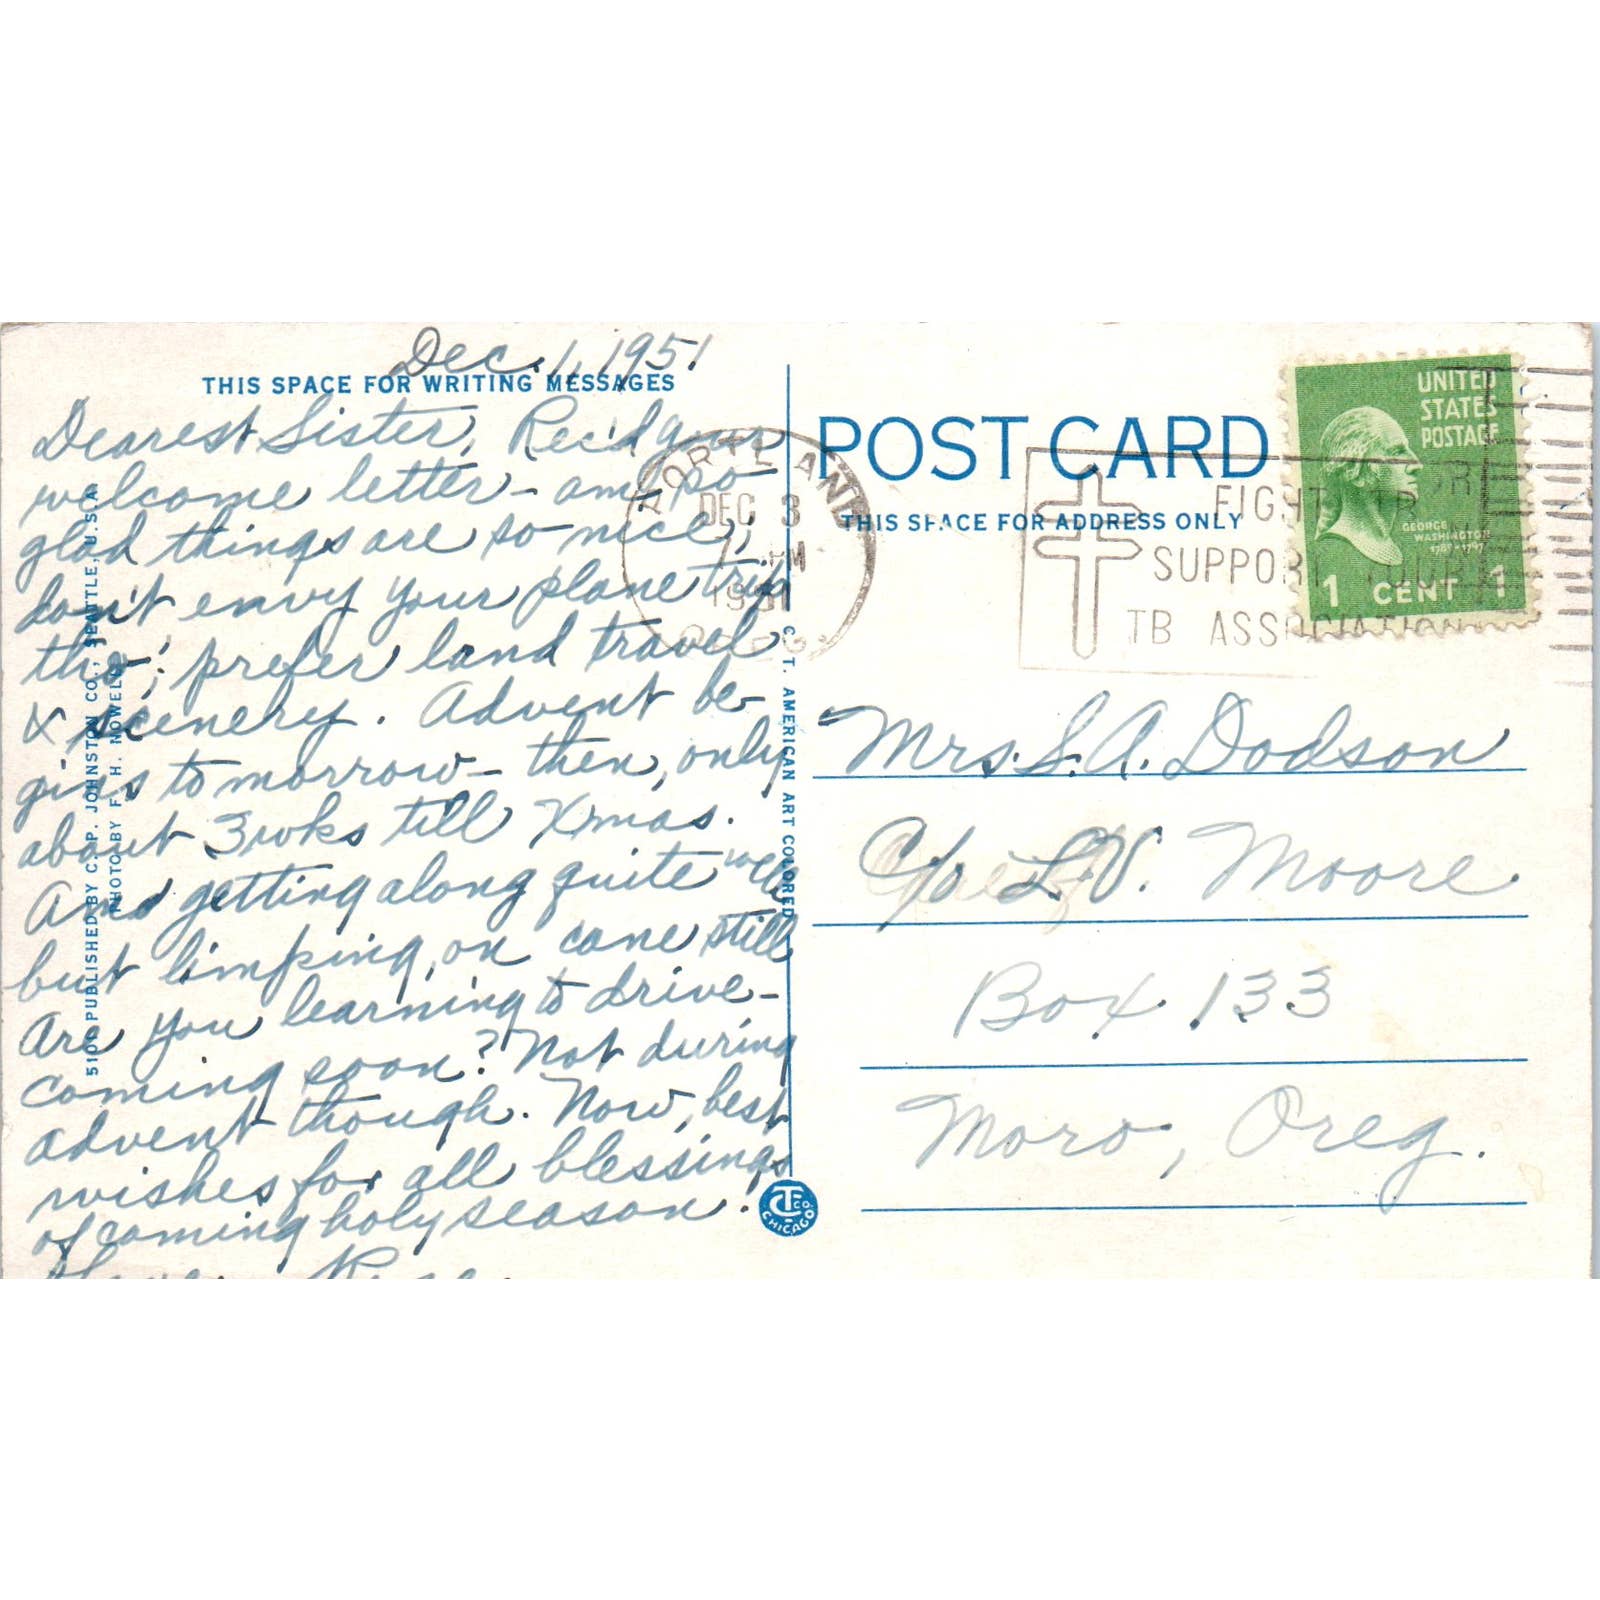 Dec. 1, 1951
THIS SPACE FOR WRITING MESSAGES
Dearest Sister, Rec'd your
welcome letter - am so
glad things are so nice;
don't envy your plane trip
tho'; prefer land travel
& scenery. Advent be-
gins tomorrow - then, only
about 3 wks till Xmas.
Am getting along quite well
but limping, on cane still
Are you learning to drive -
coming soon? Not during
advent though. Now, best
wishes for all blessings
of coming holy season.
5100 PUBLISHED BY C. P. JOHNSTON CO., SEATTLE, U.S.A.
PHOTO BY F. H. NOWELL
C. T. AMERICAN ART COLORED
CT CO CHICAGO
PORTLAND
DEC 3
PM
1951
POST CARD
THIS SPACE FOR ADDRESS ONLY
FIGHT TB
SUPPORT YOUR
TB ASSOCIATION
UNITED
STATES
POSTAGE
GEORGE
WASHINGTON
1789-1797
1 CENT 1
Mrs. S. A. Dodson
c/o L.V. Moore
Box 133
Moro, Oreg.